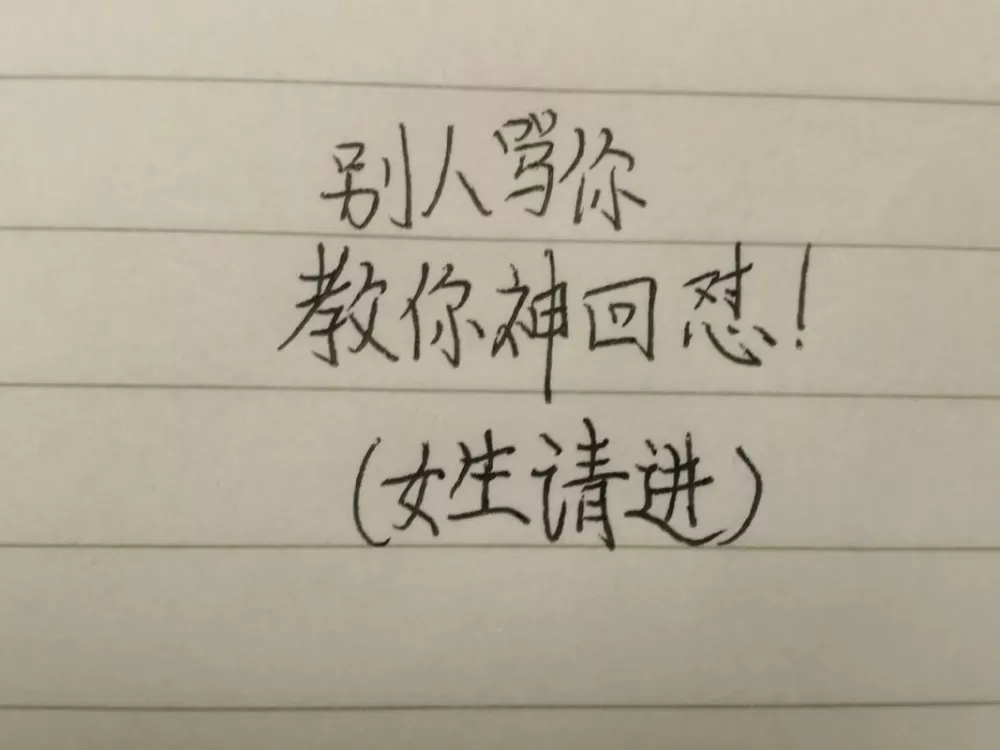 别人骂你
教你神回怼!
(女生请进)